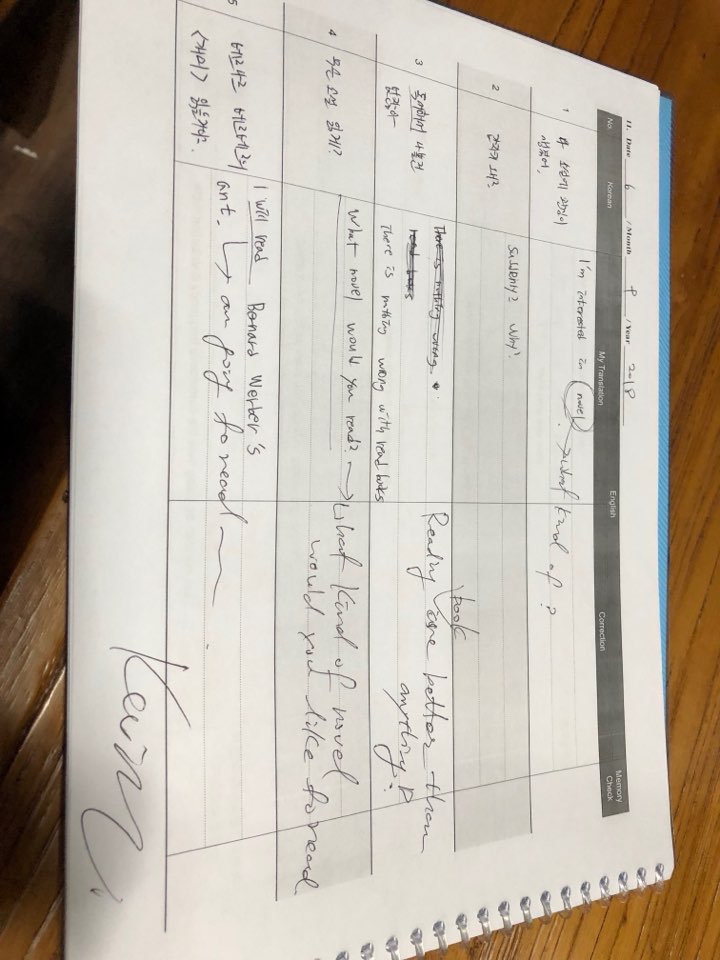 11. Date 6 /Month 9 /Year 2018
No. Korean My Translation English Correction Memory Check
1
나 소설에 관심이
생겼어.
I'm interested in novel. → what kind of ?
2
갑자기 왜?
suddenly? Why?
3
독서만한
없잖아
There is nothing wrong.
read books
There is nothing wrong with read books
Reading book are better than
anything?
4
무슨 소설 읽게?
What novel would you read? → what kind of novel
would you like to read
5
베르나르 베르베르의
<개미> 읽을거야.
I will read Bonard Werber's
ant. ↳ am going to read
Kevin